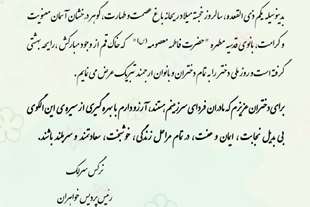 بدینوسیله یکم ذی القعده، سالروز خجسته میلاد ریحانه باغ عصمت و طهارت، گوهر درخشان آسمان معنویت
و کرامت، بانوی قدسیه مطهره "حضرت فاطمه معصومه (س)" که خاک قم از وجود مبارکش، رایحه بهشتی
گرفته است و روز ملی دختر را به تمام دختران و بانوان ارجمند تبریک عرض می نمایم.
برای دختران عزیزم که مادران فردای سرزمینم هستند، آرزو دارم با بهره گیری از سیره ی این الگوی
بی بدیل نجابت، ایمان و عفت، در تمام مراحل زندگی، خوشبخت، سعادتمند و سربلند باشند.
نرگس سرلک
رئیس پردیس خواهران